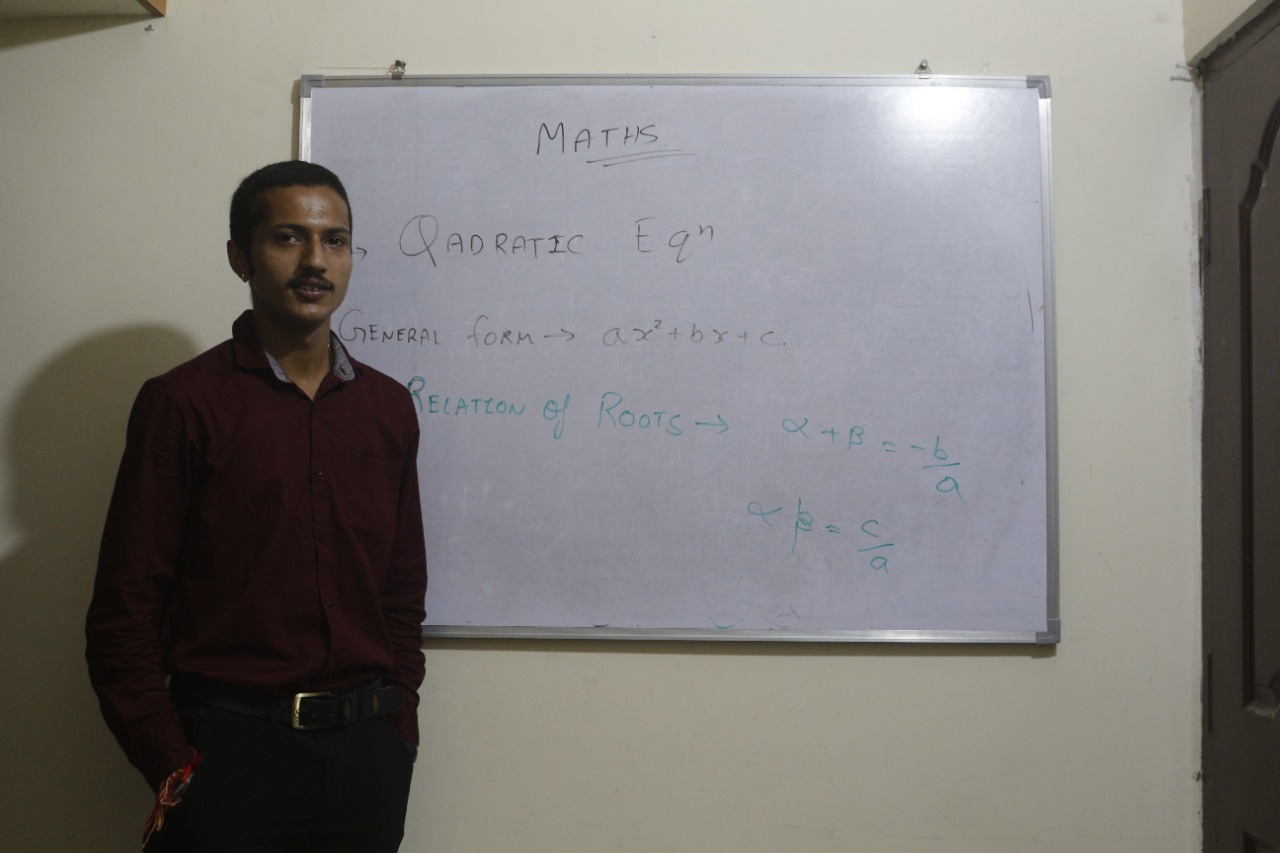 MATHS
→ QADRATIC Eqⁿ
GENERAL form → ax² + bx + c.
RELATION of ROOTS → α + β = -b/a
αβ = c/a